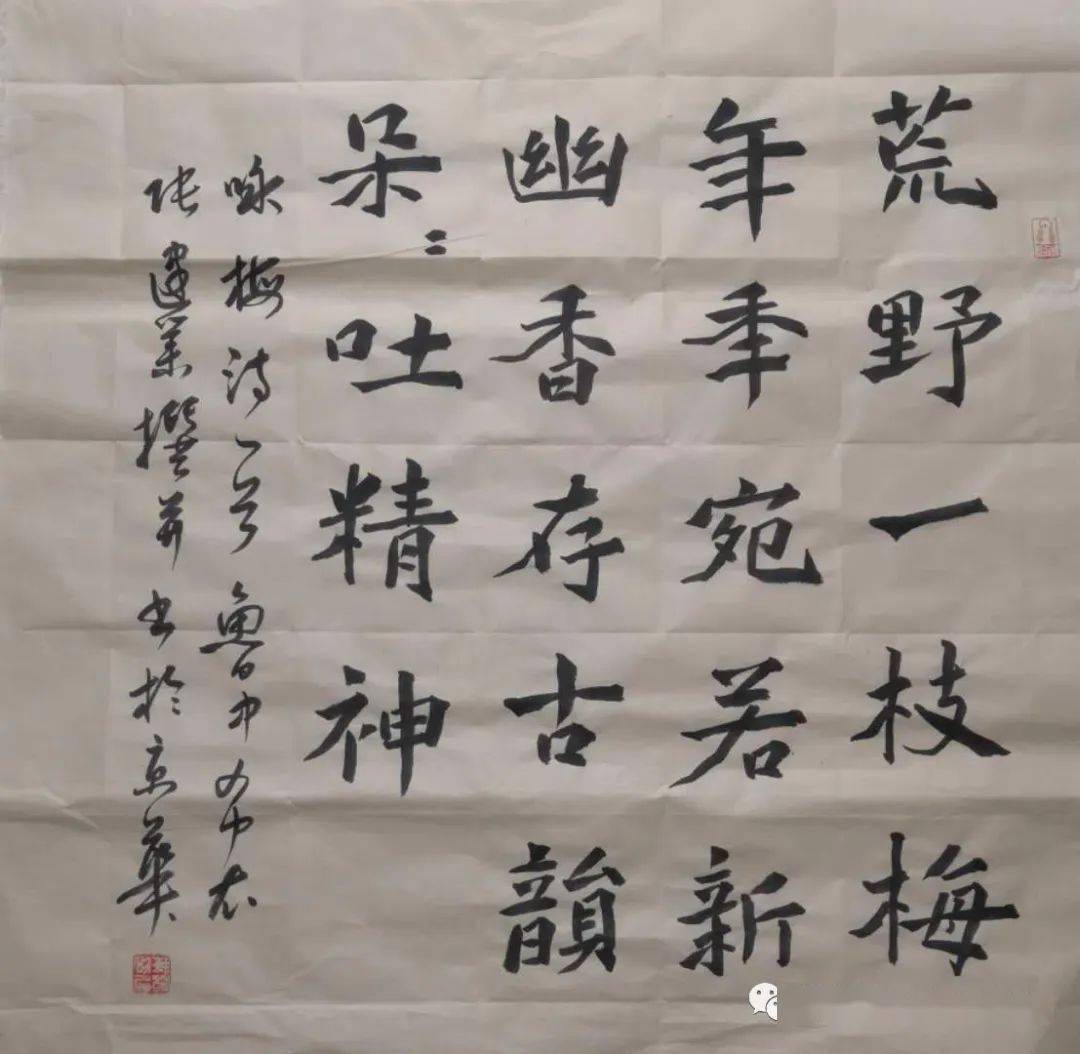 荒野一枝梅
年年宛若新
幽香存古韻
朵〻吐精神
咏梅诗一首 魯中
张建業撰并书於京華